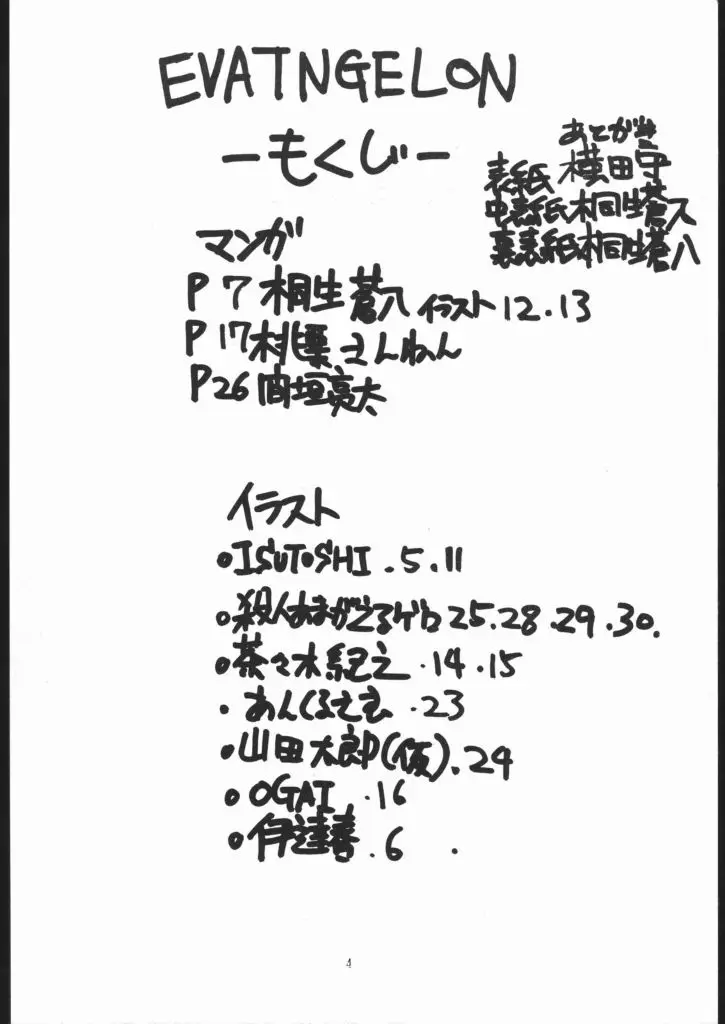 EVATNGELON
ーもくじー
あとがき
表紙 横田守
中表紙 桐生蒼八
裏表紙 桐生蒼八
マンガ
P7 桐生蒼八 イラスト12.13
P17 桃栗さんねん
P26 間垣亮太
イラスト
•ISUTOSHI.5.11
•殺人あまがえるゲロ25.28.29.30.
•茶々木紀之.14.15
•あんくるさむ.23
•山田太郎(仮).24
•OGAI.16
•伊達春.6 .
4